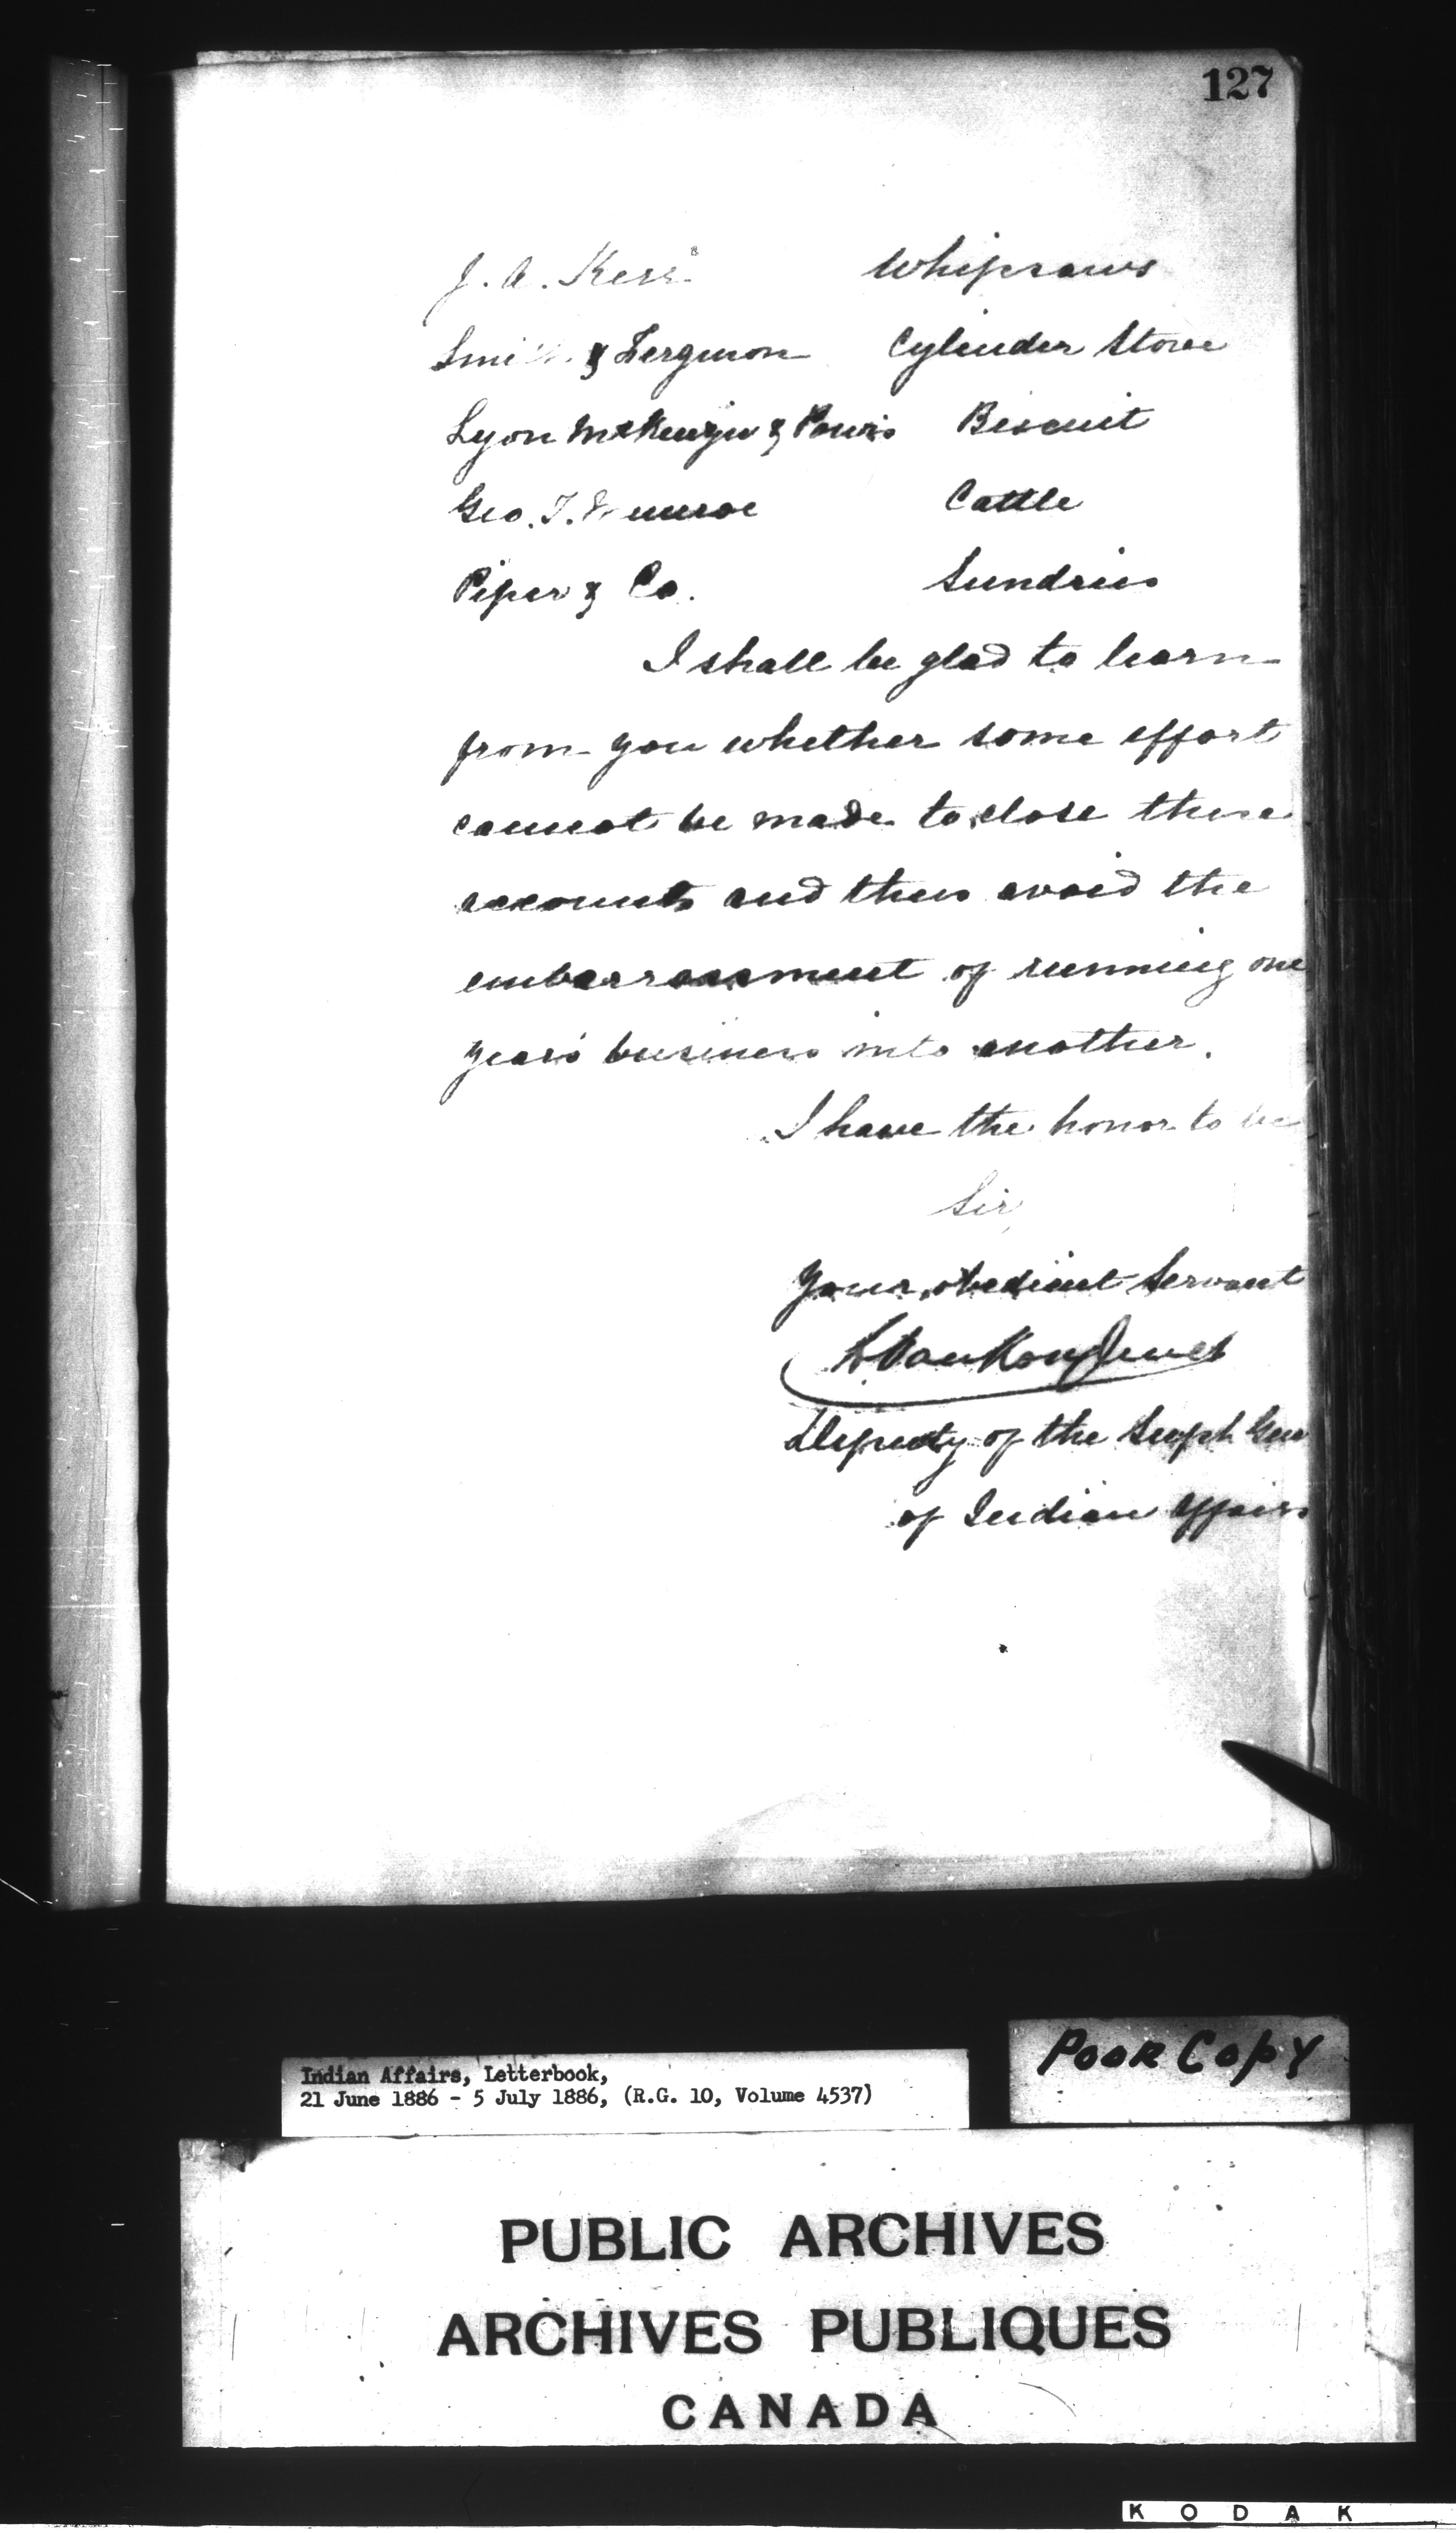 127
J. A. Kerr Whipsaws
Smith & Ferguson Cylinder Stove
Lyon McKenzie & Powis Biscuit
Geo. T. Cattle
Piper & Co. Sundries
I shall be glad to learn
from you whether some effort
cannot be made to close these
accounts and thus avoid the
embarrassment of running one
year's business into another.
I have the honor to be
Sir,
Your obedient Servant
L. Vankoughnet
Deputy of the Supt. Gen
of Indian Affairs
Poor Copy
Indian Affairs, Letterbook,
21 June 1886 - 5 July 1886, (R.G. 10, Volume 4537)
PUBLIC ARCHIVES
ARCHIVES PUBLIQUES
CANADA
KODAK